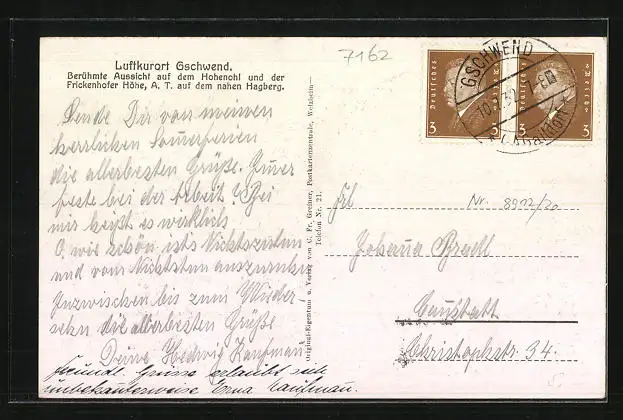 7162
Luftkurort Gschwend.
Berühmte Aussicht auf dem Hohenohl und der
Frickenhofer Höhe, A. T. auf dem nahen Hagberg.
Sende Dir von meinen
herrlichen Sommerferien
die allerbesten Grüße. Immer
feste bei der Arbeit? Bei
mir heißt es wirklich
O, wie schön ist's Nichtstun
und vom Nichtstun auszuruhn
Inzwischen bis zum Wieder-
sehn die allerbesten Grüße
Deine Hedwig Kaufmann
freundl. Grüsse erlaubt sich
unbekannterweise Erna Kaufmann.
Original-Eigentum u. Verlag von C. Fr. Greiner, Postkartenzentrale, Welzheim
Telefon Nr. 21.
Deutsches Reich
3
Deutsches Reich
3
GSCHWEND
Frl
Nr. 8912/20
Johanna Bredl
Cannstatt
Christophstr. 34.